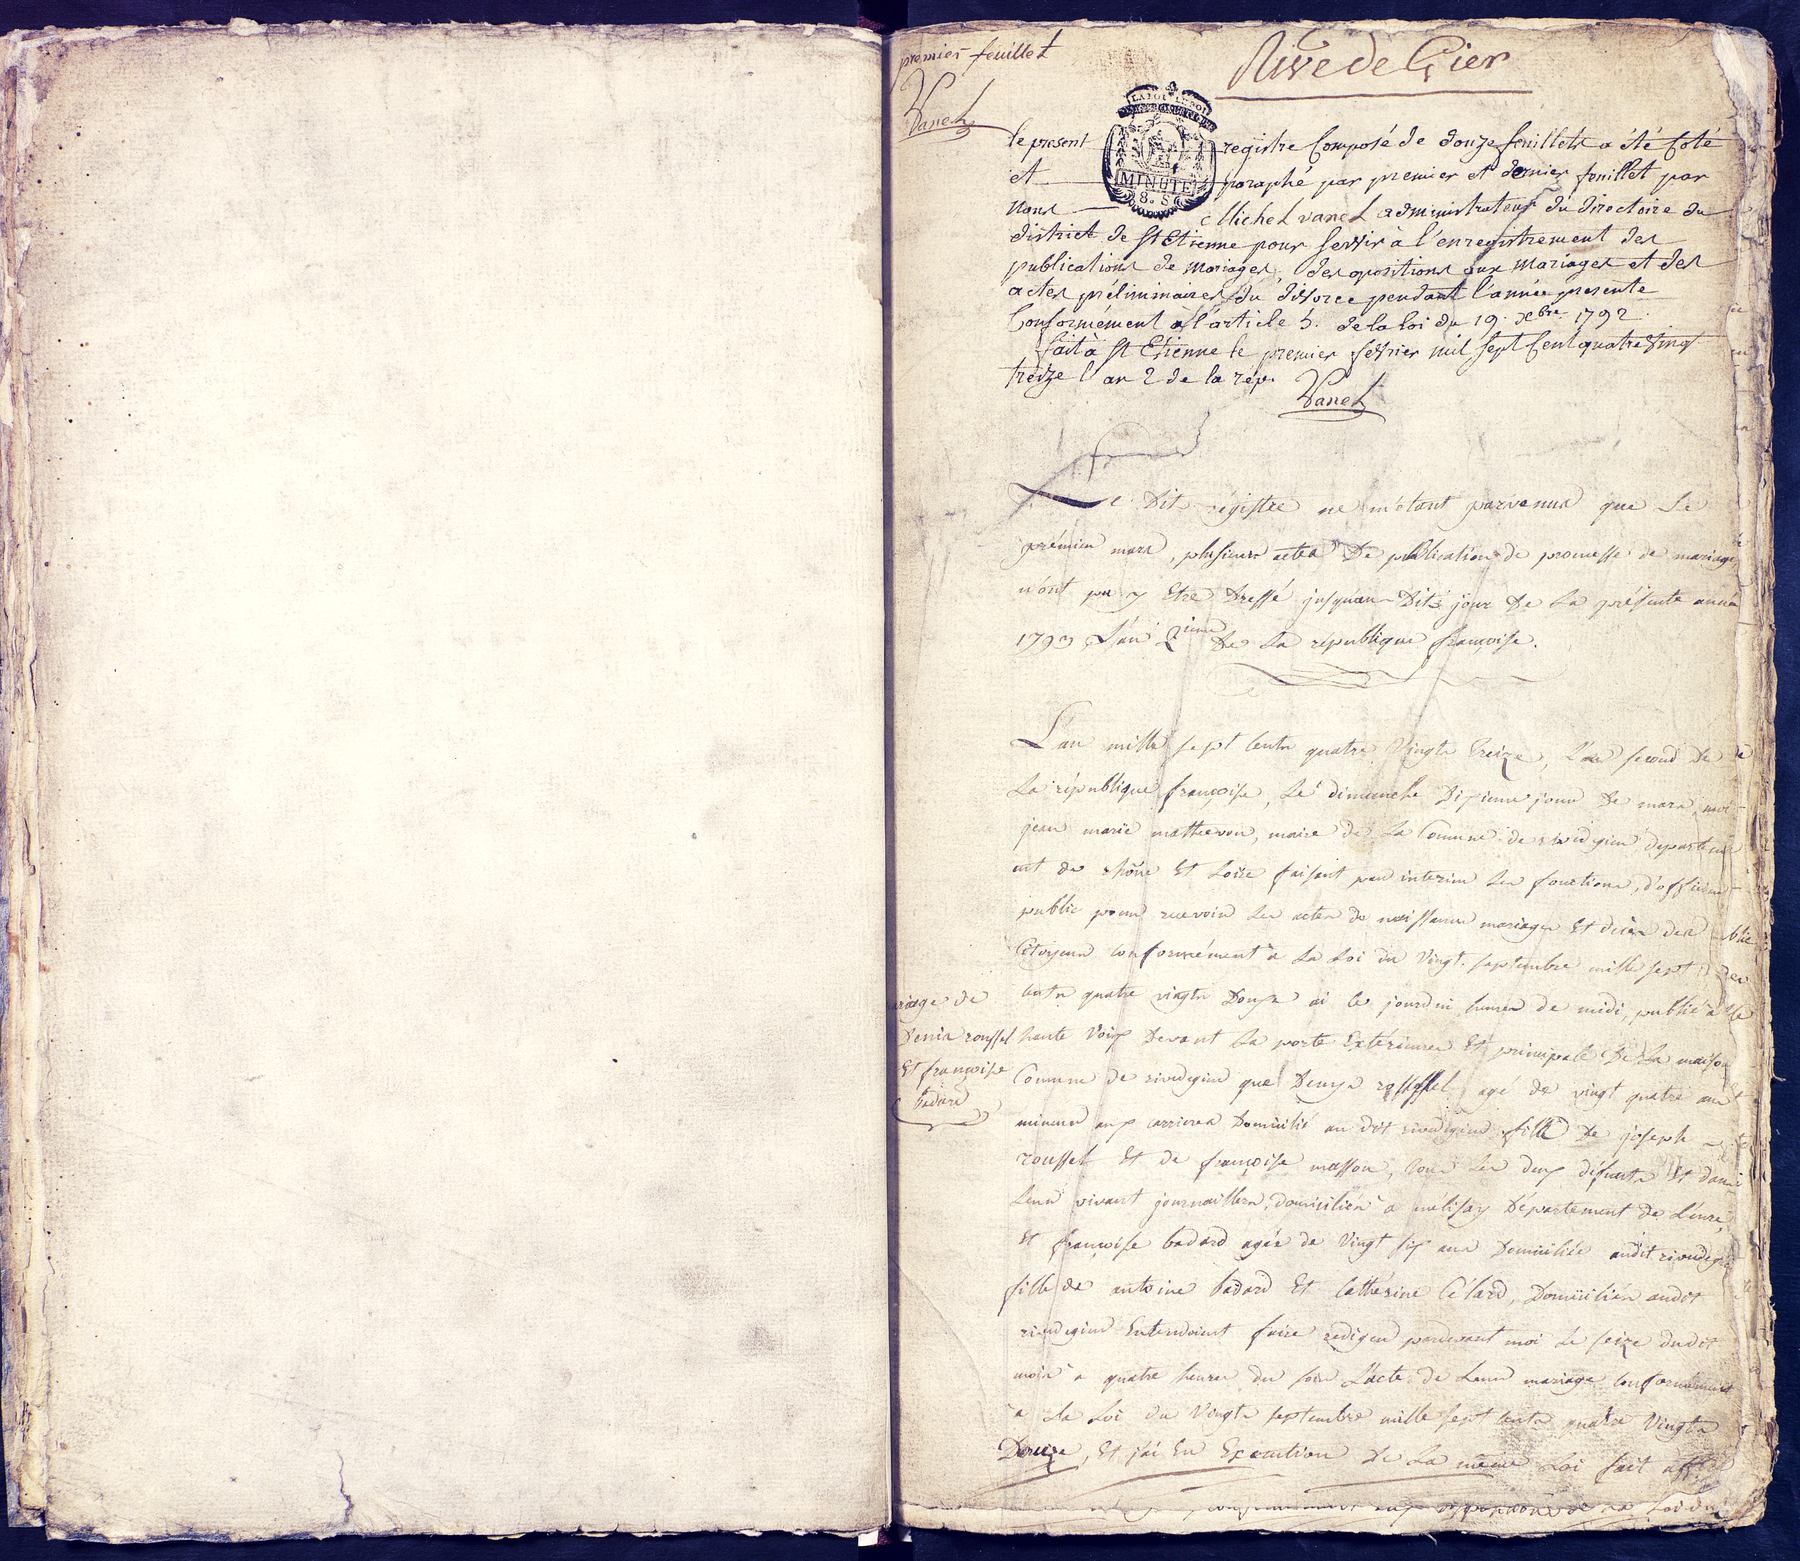 premier feuillet
Vanel
Rive de Gier
LA LOI LE ROI
MINUTE
8. S
le present registre Composé de douze feuillets a été Coté
et paraphé par premier et dernier feuillet par
Nous Michel vanel administrateur du directoire du
district de St Etienne pour servir à l'enregistrement des
publications de mariages, des opositions aux mariages et des
actes préliminaires du divorce pendant l'année presente
Conformément a l'article 5. de la loi du 19. xbre 1792.
fait à St Etienne le premier fevrier mil sept Cent quatre vingt
treize l'an 2 de la rép.
Vanel
Le Dit régistre ne m'etant parvenus que Le
prémier mars, plusieurs actes De publication de promesse de mariage
n'ont pu y Etre Dressé jusqu'au Dit jour De La présente année
1793 L'an 2ieme De La république françoise.
L'an mille sept Cents quatre Vingts Treize, L'an second De
La république françoise, Le dimanche Dixieme jour De mars, moi
jean marie mathevon, maire de La Comune de rivedegier departem
ent de rhône Et Loire faisant par interim Les fonctions d'officier
public pour recevoir Les actes de naissances mariages Et décès des
Citoyens conformément a La Loi du Vingt septembre mille sept
Cents quatre vingts Douze ai le jourdui heures de midi, publié a
haute Voix Devant La porte Extérieure Et principale De La maison
Comune de rivedegier que Denys roussel agé de vingt quatre ans
mineur aux carrieres Domicilié au dit rivedegier fils De joseph
roussel Et de françoise masson, tous Les deux défunts Et dans
Leur vivant journailliers, domiciliés a melisay Département de L'eure,
Et françoise badard agée de Vingt six ans Domiciliée audit rivedegier
fille de antoine badard Et Cathérine Célard, Domiciliés audit
rivedegier Entendoient faire rediger pardevant moi Le seize dudit
mois a quatre heures du soir L'acte de Leur mariage Conformément
a La Loi du Vingts septembre mille sept Cents quatre Vingts
Douze, Et j'ai En Execution De La même Loi fait
mariage de
Denis roussel
Et françoise
badard